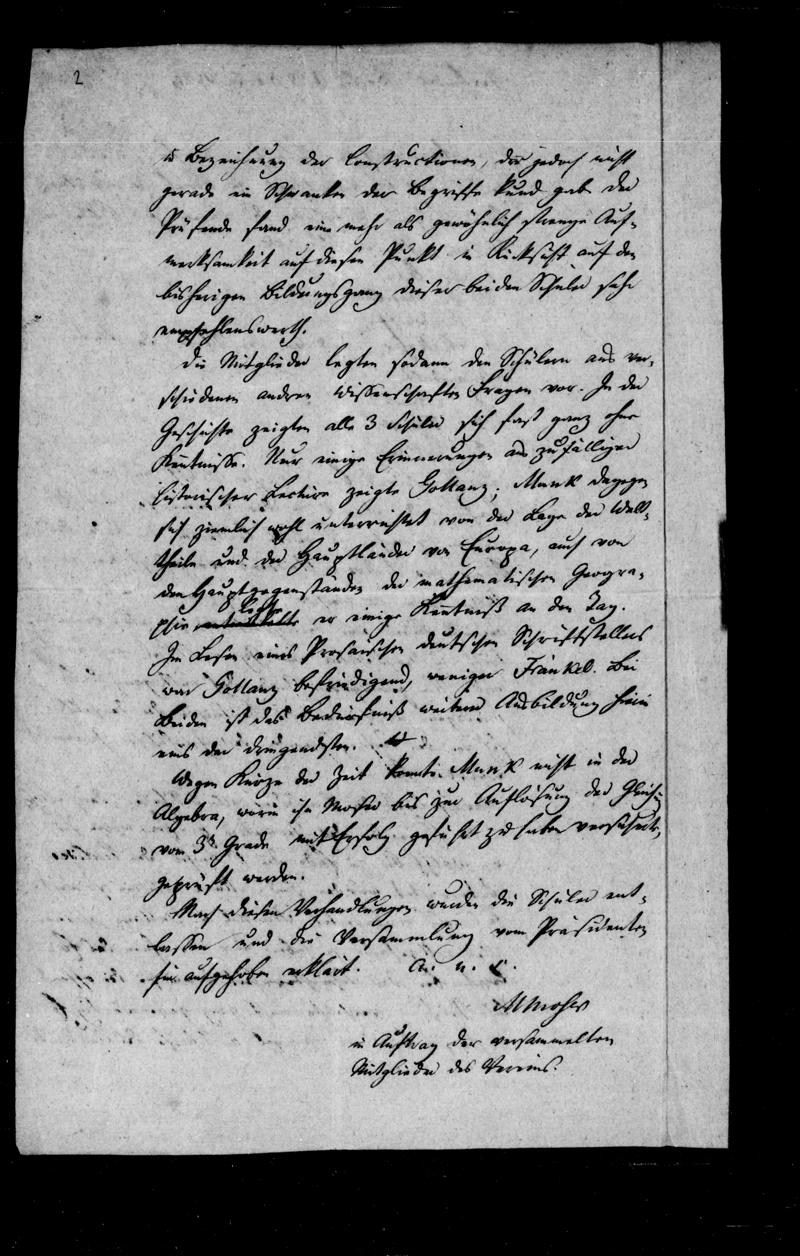 2
Bezeichnung der Constructionen, das jedoch nicht
gerade ein Schwanken der Begriffe kund gab. Der
Prüfende fand eine mehr als gewöhnlich strenge Auf-
merksamkeit auf diesen Punkt in Rücksicht auf den
bisherigen Bildungsgang dieser beiden Schüler sehr
empfehlenswerth.
Die Mitglieder legten sodann den Schülern aus ver-
schiedenen andren Wissenschaften Fragen vor. In der
Geschichte zeigten alle 3 Schüler sich fast ganz ohne
Kentnisse. Nur einige Erinnerungen aus zufälliger
historischer Lectüre zeigte Gollanz; Munk dagegen
sich ziemlich wohl unterrichtet von der Lage der Welt-
theile und der Hauptländer von Europa, auch von
den Hauptgegenständen der mathematischen Geogra-
phie legte er einige Kentniß an den Tag.
Im Lesen eines Prosaischen deutschen Schriftstellers
war Gollanz befriedigend, weniger Fränkel. Bei
Beiden ist das Bedürfniß weiterer Ausbildung hierin
eins der dringendsten.
Wegen Kürze der Zeit konnte Munk nicht in der
Algebra, worin ihn Moser bis zur Auflösung der Gleich.
vom 3t Grade mit Erfolg geführt zu haben versichert,
geprüft werden.
Nach diesen Verhandlungen wurden die Schüler ent-
lassen und die Versammlung vom Präsidenten
für aufgehoben erklärt. a. u. s.
M Moser
in Auftrag der versammelten
Mitglieder des Vereins.